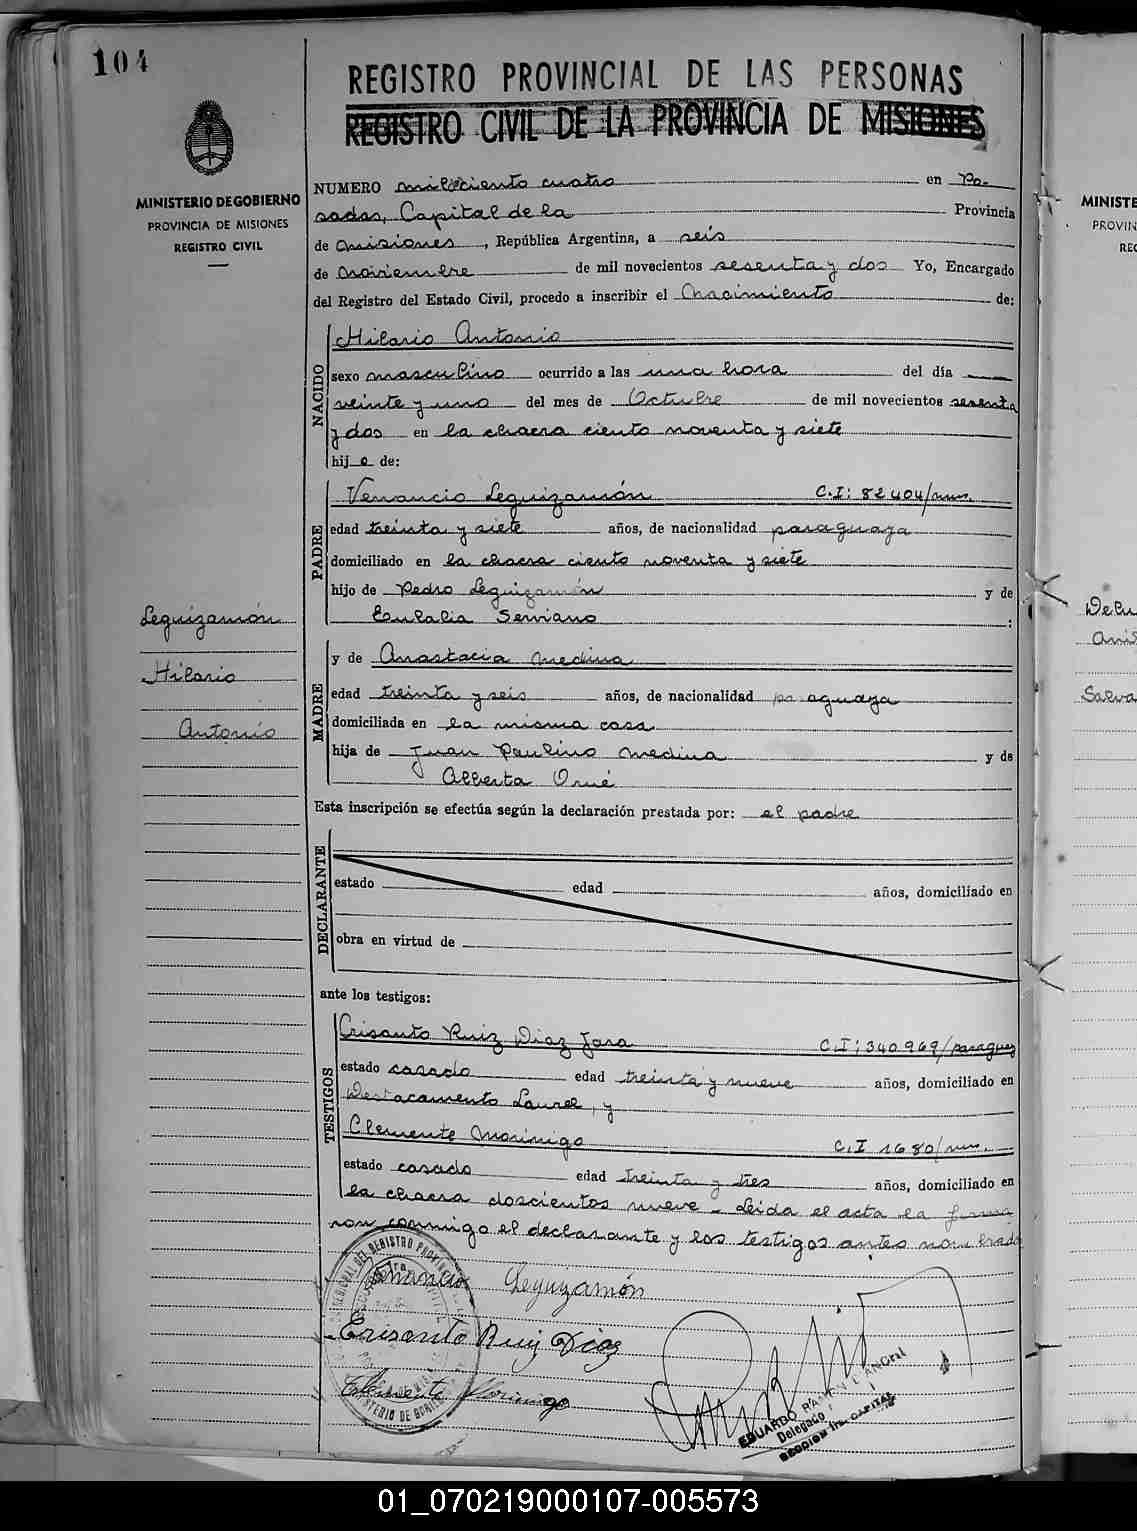 104
REGISTRO PROVINCIAL DE LAS PERSONAS
REGISTRO CIVIL DE LA PROVINCIA DE MISIONES
MINISTERIO DE GOBIERNO
PROVINCIA DE MISIONES
REGISTRO CIVIL
NUMERO mil ciento cuatro en Po-
sadas, Capital de la Provincia
de Misiones, República Argentina, a seis
de Noviembre de mil novecientos sesenta y dos Yo, Encargado
del Registro del Estado Civil, procedo a inscribir el Nacimiento de:
NACIDO
Hilario Antonio
sexo masculino ocurrido a las una hora del día
veinte y uno del mes de Octubre de mil novecientos sesenta
y dos en la chacra ciento noventa y siete
hijo de:
PADRE
Venancio Leguizamón C.I: 82404/mns.
edad treinta y siete años, de nacionalidad paraguaya
domiciliado en la chacra ciento noventa y siete
hijo de Pedro Leguizamón y de
Eulalia Serviano :
MADRE
y de Anastacia Medina
edad treinta y seis años, de nacionalidad paraguaya
domiciliada en la misma casa
hija de Juan Paulino Medina y de
Alberta Orué
Leguizamón
Hilario
Antonio
Esta inscripción se efectúa según la declaración prestada por: el padre
DECLARANTE
estado edad años, domiciliado en
obra en virtud de
ante los testigos:
TESTIGOS
Crisanto Ruiz Diaz Jara C.I: 340969/paraguay
estado casado edad treinta y nueve años, domiciliado en
Destacamento Laurel, y
Clemente Morinigo C.I 1680/mns.
estado casado edad treinta y tres años, domiciliado en
la chacra doscientos nueve - Leida el acta la firma
ron conmigo el declarante y los testigos antes nombrados
Venancio Leguizamón
Crisanto Ruiz Diaz
Clemente Morinigo
EDUARDO RAMON
Delegado
SECCION CAPITAL
MINISTE
PROVIN
REG
01_070219000107-005573